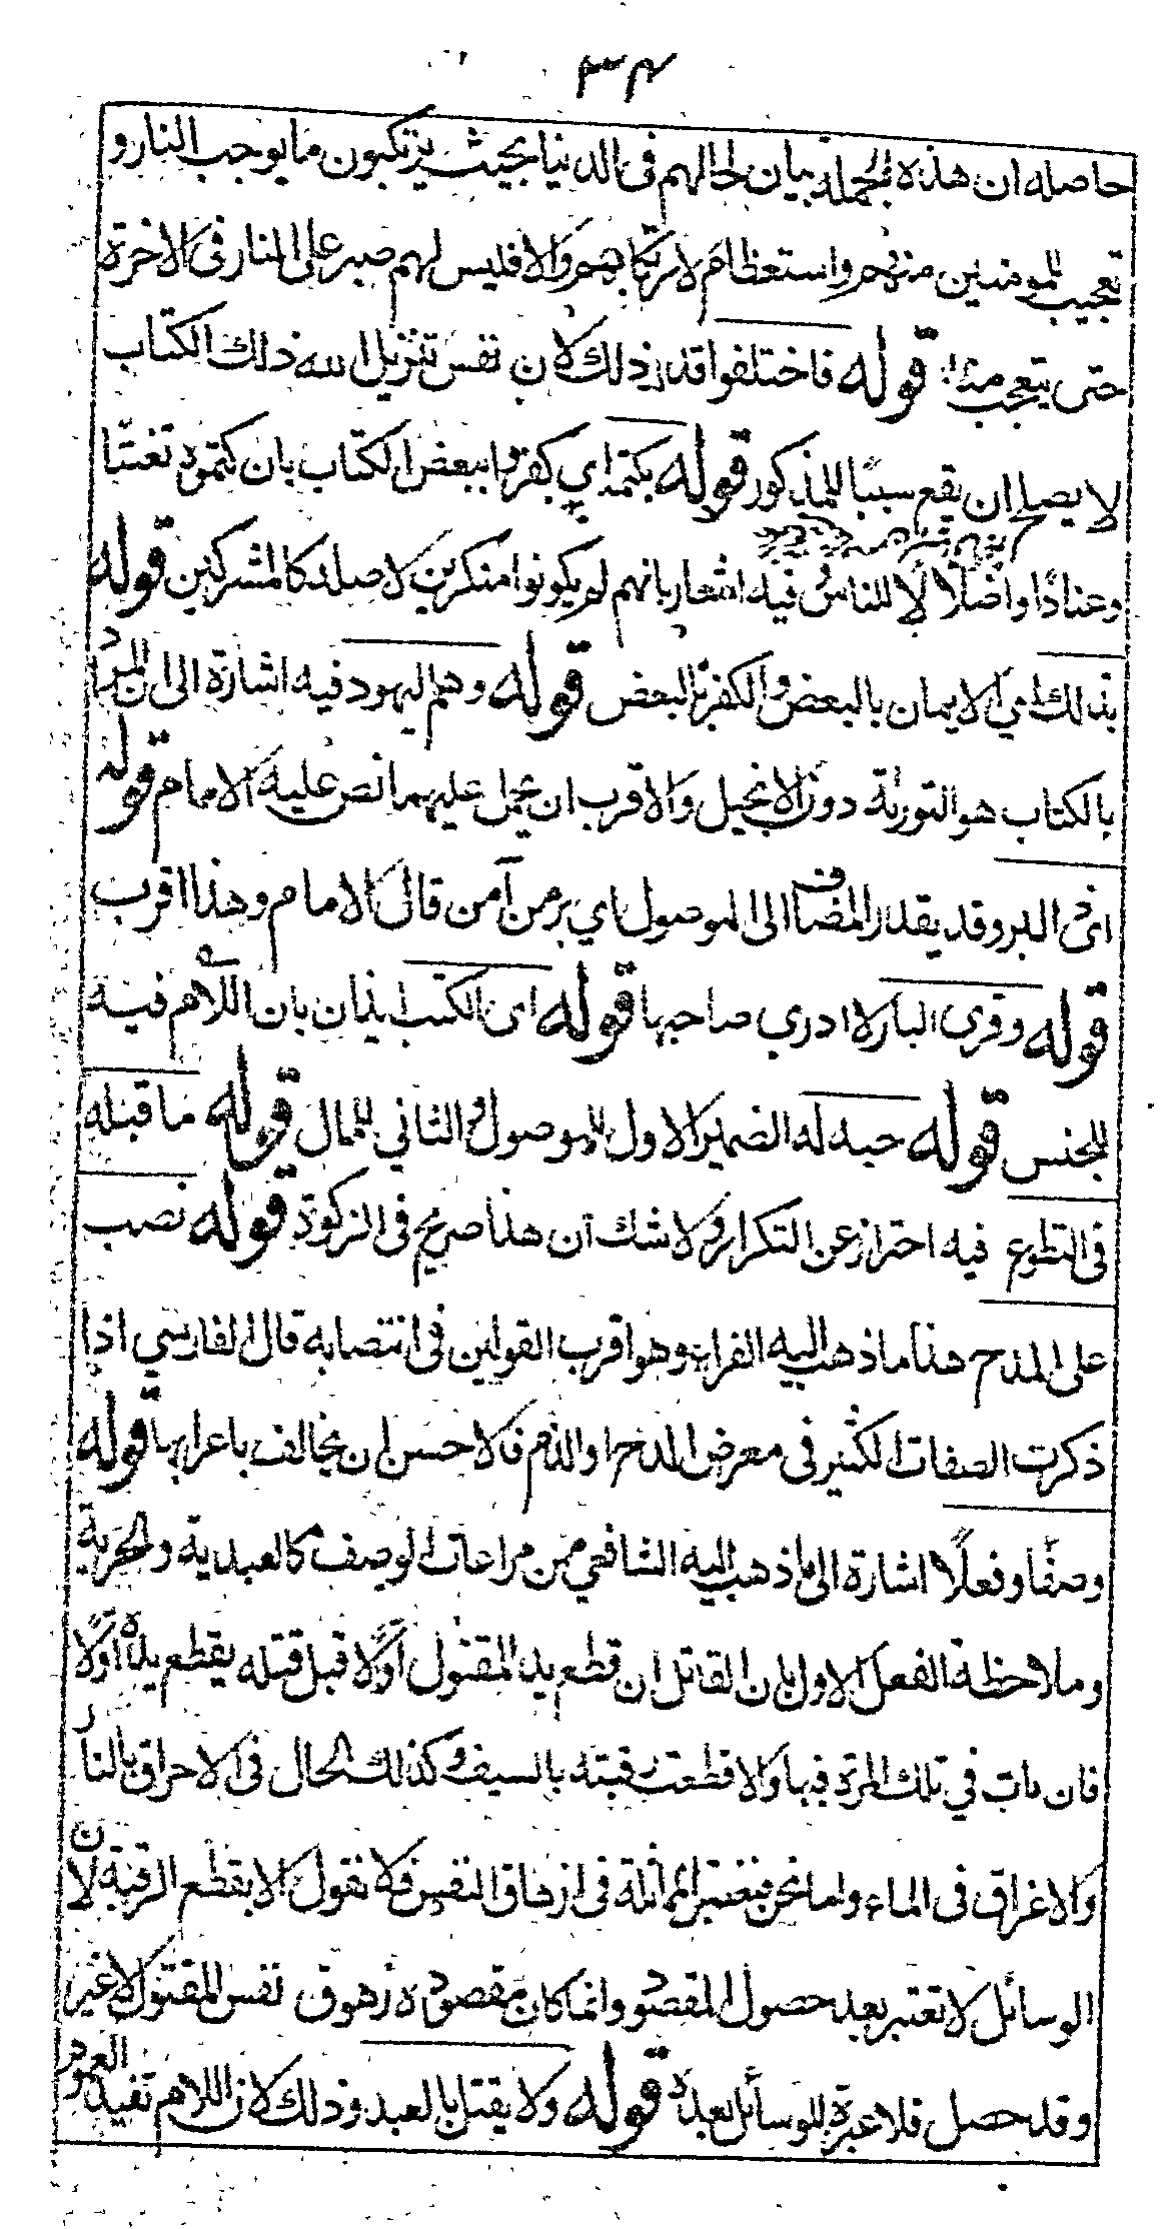 ٣٤
حاصله ان هذه الجملة بيان لحالهم فى الدنيا بحيث يرتكبون ما يوجب النار و
تعجيب للمومنين منهم واستعظام لارتكابهم والا فليس لهم صبر على النار فى الاخرة
حتى يتعجب منه قوله فاختلفوا قدر ذلك لان نفس تنزيل الله ذلك الكتاب
لا يصلح ان يقع سببًا للمذكور قوله بكتمه اي كفروا ببعض الكتاب بان كتموه تعنتًا
وعنادًا واضلالًا للناس فيه اشعار بانهم لم يكونوا منكرين لاصله كالمشركين قوله
بذلك اي الايمان بالبعض والكفر بالبعض قوله وهم اليهود فيه اشارة الى ان المراد
بالكتاب هو التوراة دون الانجيل والاقرب ان يحمل عليهما نص عليه الامام قوله
اى ذا البر وقد يقدر المضاف الى الموصول اي بر من آمن قال الامام وهذا اقرب
قوله وقرى البار لا ادري صاحبها قوله اى الكتب ايذان بان اللام فيه
للجنس قوله حبه له الضمير الاول للموصول والثاني للمال قوله ما قبله
فى التطوع فيه احتراز عن التكرار ولا شك ان هذا صريح فى الزكوة قوله نصب
على المدح هذا ما ذهب اليه الفراء وهو اقرب القولين فى انتصابه قال الفارسي اذا
ذكرت الصفات الكثير فى معرض المدح او الذم فالاحسن ان يخالف باعرابها قوله
وصفًا وفعلًا اشارة الى ما ذهب اليه الشافعي من مراعات الوصف كالعبدية والحرية
وملاحظة الفعل الاول بان القاتل ان قطع يد المقتول أوّلا قبل قتله يقطع يده أوّلا
فان مات في تلك المرة فبها والا قطعت رقبته بالسيف وكذلك الحال فى الاحراق بالنار
والاغراق فى الماء واما نحن فنعتبر المماثلة فى ازهاق النفس فلا نقول الا بقطع الرقبة لان
الوسائل لا تعتبر بعد حصول المقصود وانما كان مقصوده زهوق نفس المقتول لا غير
وقد حصل فلا عبرة للوسائل بعده قوله ولا يقتل بالعبد وذلك لان اللام تفيد العهود